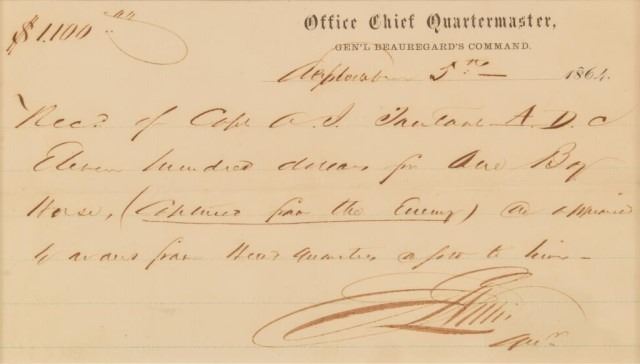 $1.100 00/00
Office Chief Quartermaster,
GEN'L BEAUREGARD'S COMMAND.
September 5th 1864.
Rec'd of Capt A. J. A. D. C
Eleven hundred dollars for One Bay
Horse, (Captured from the Enemy) as
by from Head quarters to him –